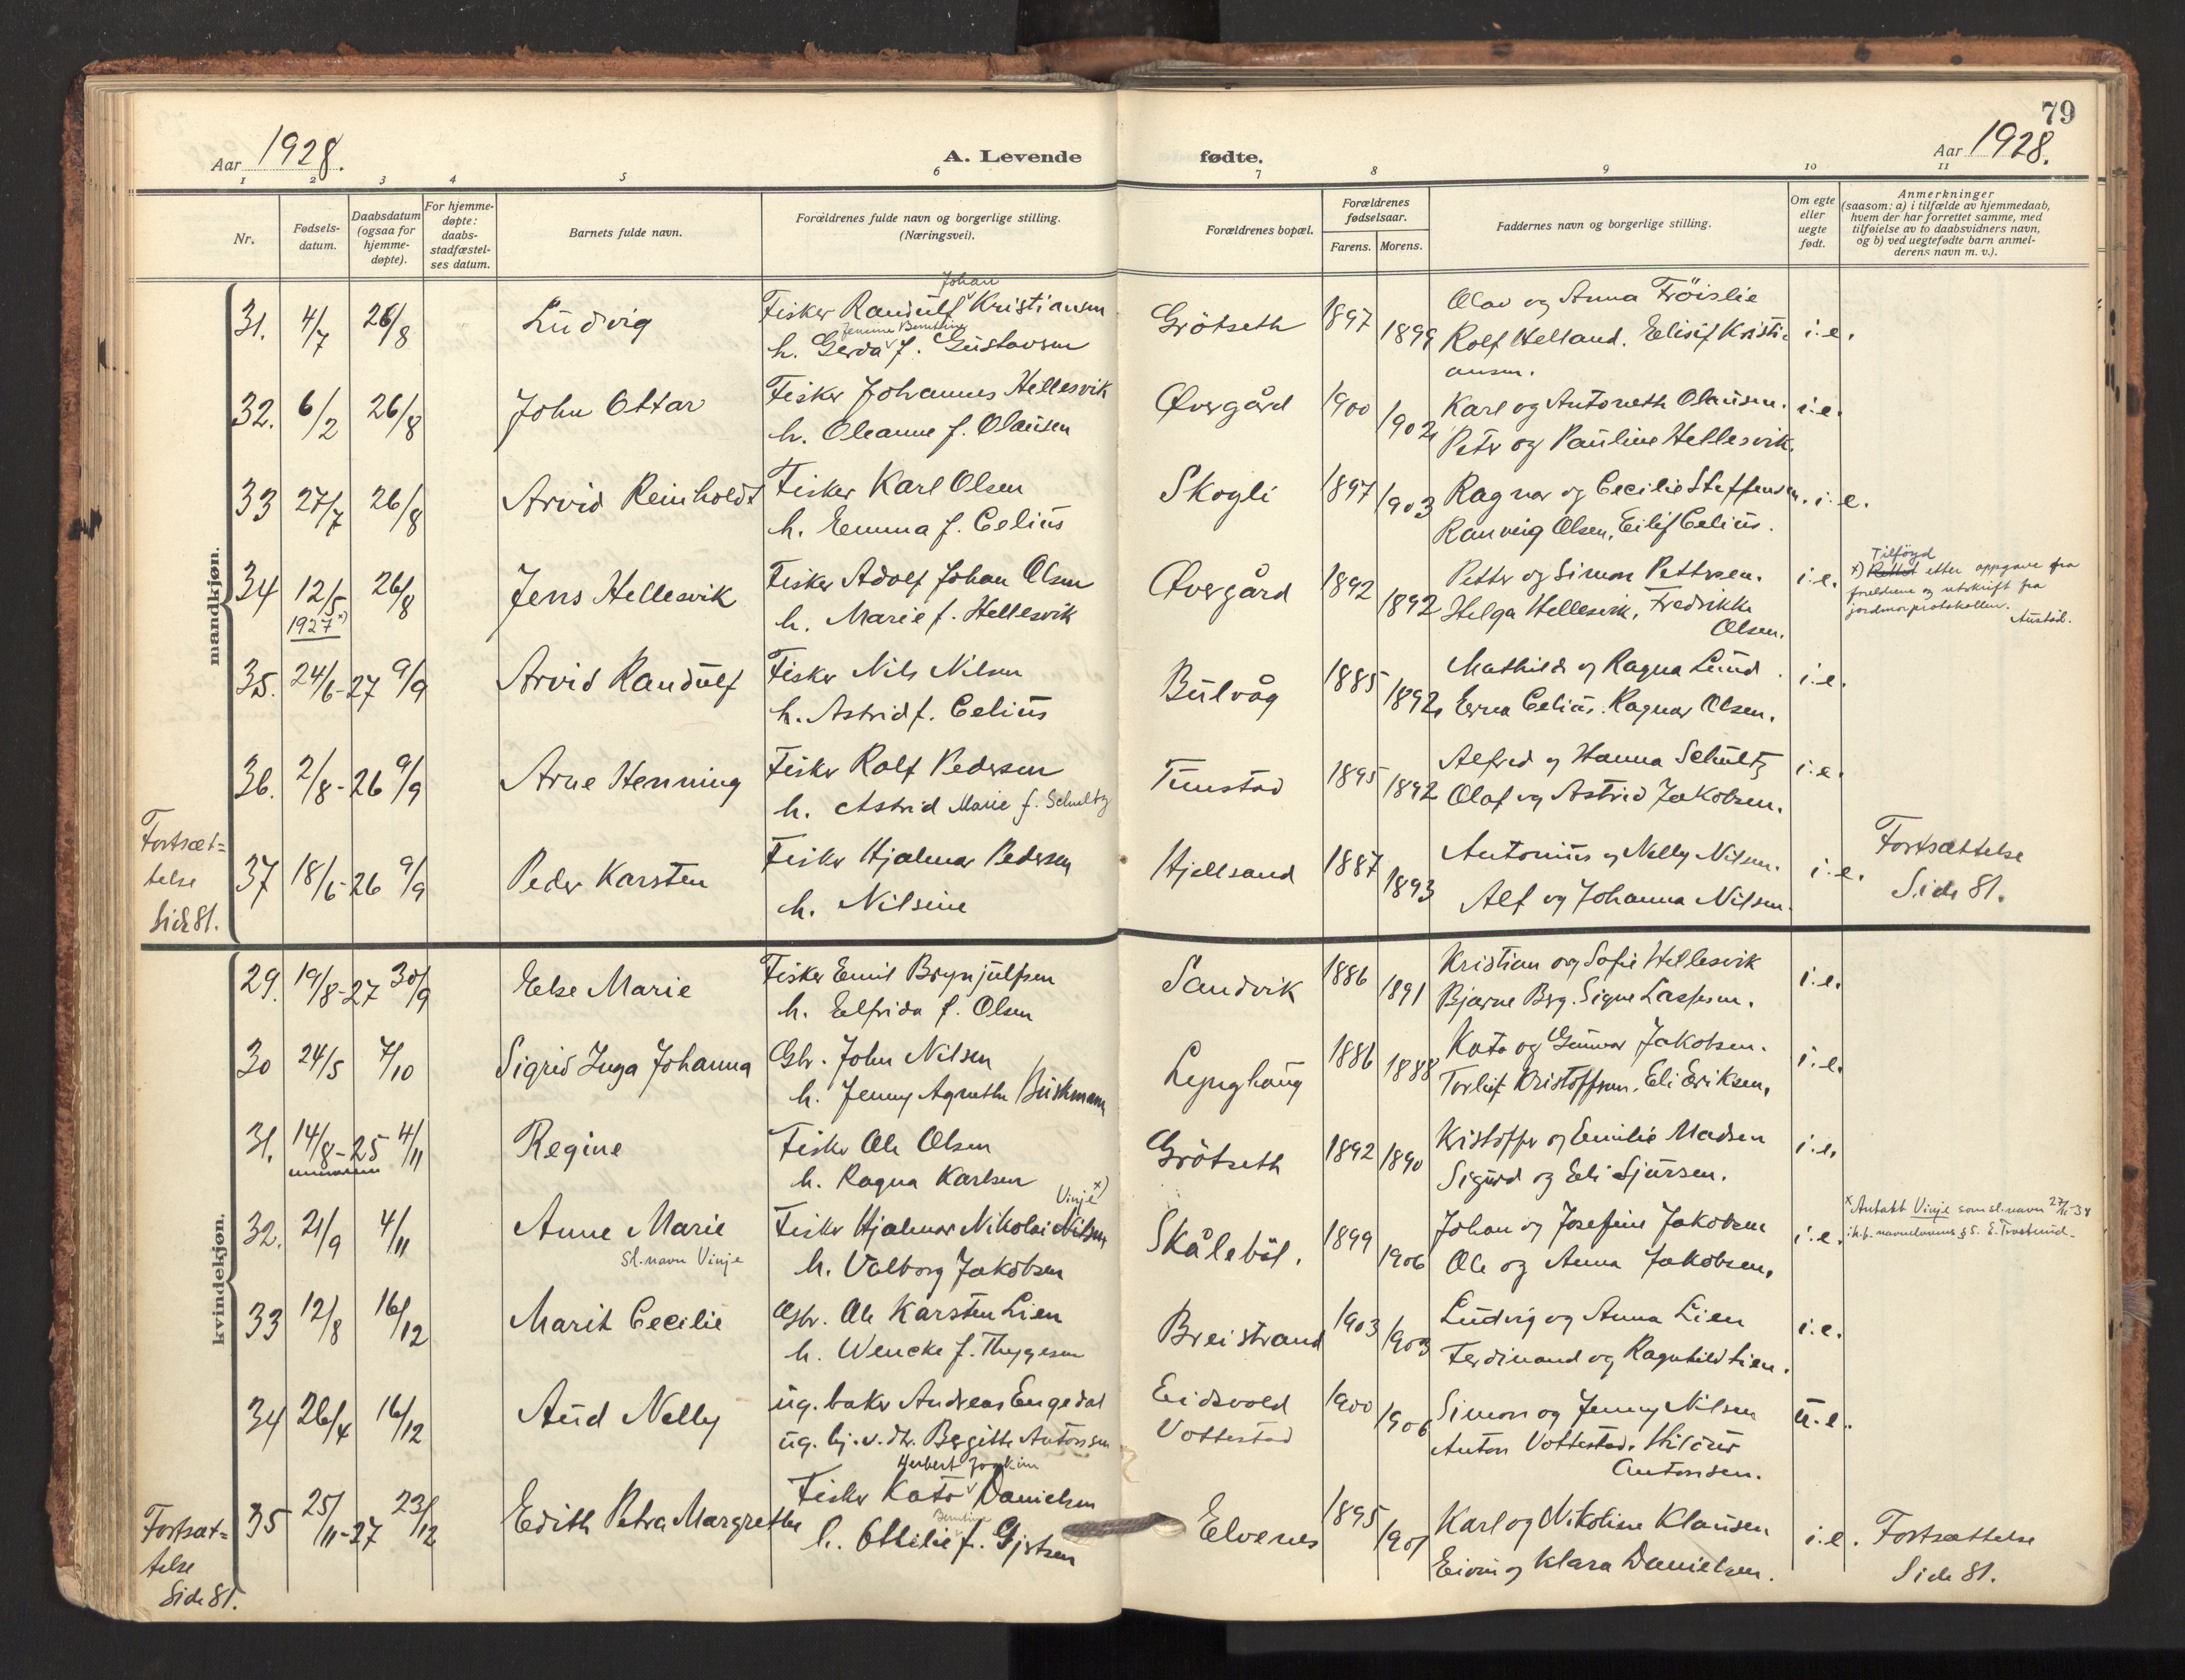 79
Aar 1928.
A. Levende
fødte.
Aar 1928.
1 2 3 4 5 6 7 8 9 10 11
Nr.
Fødsels-
datum.
Daabsdatum
(ogsaa for
hjemme-
døpte).
For hjemme-
døpte:
daabs-
stadfæstel-
ses datum.
Barnets fulde navn.
Forældrenes fulde navn og borgerlige stilling.
(Næringsvei).
Forældrenes bopæl.
Forældrenes
fødselsaar.
Farens. Morens.
Faddernes navn og borgerlige stilling.
Om egte
eller
uegte
født.
Anmerkninger
(saasom: a) i tilfælde av hjemmedaab,
hvem der har forrettet samme, med
tilføielse av to daabsvidners navn,
og b) ved uegtefødte barn anmel-
derens navn m. v.).
mandkjøn.
Johan
31. 4/7 26/8 Ludvig Fisker Randulf Kristiansen Grötseth 1897 1899 Olav og Anna Fröislie i.e.
h. Gerda f. Gustavsen Rolf Helland. Eelisif Kristi-
ansen.
32. 6/2 26/8 John Ottar Fisker Johannes Hellesvik Øvergård 1900 1902 Karl og Antoneth Olausen. i.e.
h. Oleanne f. Olausen Petr og Pauline Hellesvik.
33 27/7 26/8 Arvid Reinholdt Fisker Karl Olsen Skogli 1897 1903 Ragnar og Cecilie Steffensen. i.e.
h. Emma f. Celius Ranveig Olsen, Eilif Celius.
34 12/5 26/8 Jens Hellesvik Fisker Adolf Johan Olsen Øvergård 1892 1892 Petter og Simon Pettersen. i.e.
1927 x) h. Marie f. Hellesvik Helga Hellesvik, Fredrikke
Olsen.
Tilföyd
x) Rettet etter oppgave fra
foreldrene og utskrift fra
jordmorprotokollen.
Austad.
35. 24/6-27 9/9 Arvid Randulf Fisker Nils Nilsen Bulvåg 1885 1892 Mathilde og Ragna Lund. i.e.
h. Astrid f. Celius Erna Celius. Ragnar Olsen.
36. 2/8-26 9/9 Arne Henning Fisker Rolf Pedersen Tunstad 1895 1892 Alfred og Hanna Schultz i.e.
h. Astrid Marie f. Schultz Olaf og Astrid Jakobsen.
37 18/6-26 9/9 Peder Karsten Fisker Hjalmar Pedersen Hjellsand 1887 1893 Antonius og Nelly Nilsen. i.e.
h. Nilsine Alf og Johanna Nilsen.
Fortsæt-
telse
Side 81.
Fortsættelse
Side 81.
kvindekjøn.
29. 19/8-27 30/9 Else Marie Fisker Emil Brynjulfsen Sandvik 1886 1891 Kristian og Sofie Hellesvik i.e.
h. Eelfrida f. Olsen Bjarne Berg. Signe Lassesen.
30 24/5 7/10 Sigrid Inga Johanna Gbr. John Nilsen Lynghaug 1886 1888 Kato og Gunvor Jakobsen. i.e.
h. Jenny Agnethe Buschmann Torleif Kristoffersen. Eli Eriksen.
31. 14/8-25 4/11 Regine Fisker Ole Olsen Grötseth 1892 1890 Kristoffer og Emilie Madsen i.e.
h. Ragna Karlsen Sigurd og Eli Sjursen.
Vinje x)
32. 21/9 4/11 Anne Marie Fisker Hjalmar Nikolai Nilsen Skåleböl. 1899 1906 Johan og Josefine Jakobsen i.e.
sl. navn Vinje h. Valborg Jakobsen Ole og Anna Jakobsen.
x Antatt Vinje som sl. navn
33 12/8 16/12 Marit Cecilie Gbr. Ole Karsten Lien Breistrand 1903 1903 Ludvig og Anna Lien i.e.
h. Wencke f. Thygesen Ferdinand og Ragnhild Lien.
34 26/4 16/12 Aud Nelly ug. baker Andreas Engedal Eidsvold 1900 1906 Simon og Jenny Nilsen u.e.
ug. hj. v. dtr. Bergitte Antonsen Vottestad Anton Vottestad. Hildur
Antonsen.
Herbert Joakim
35 25/11-27 23/12 Edith Petra Margrethe Fisker Kato Danielsen Elvenes 1895 1901 Karl og Nikoline Klausen i.e.
h. Ottilie f. Gjertsen Eivin og Klara Danielsen.
Fortsæt-
telse
Side 81.
Fortsættelse
Side 81.